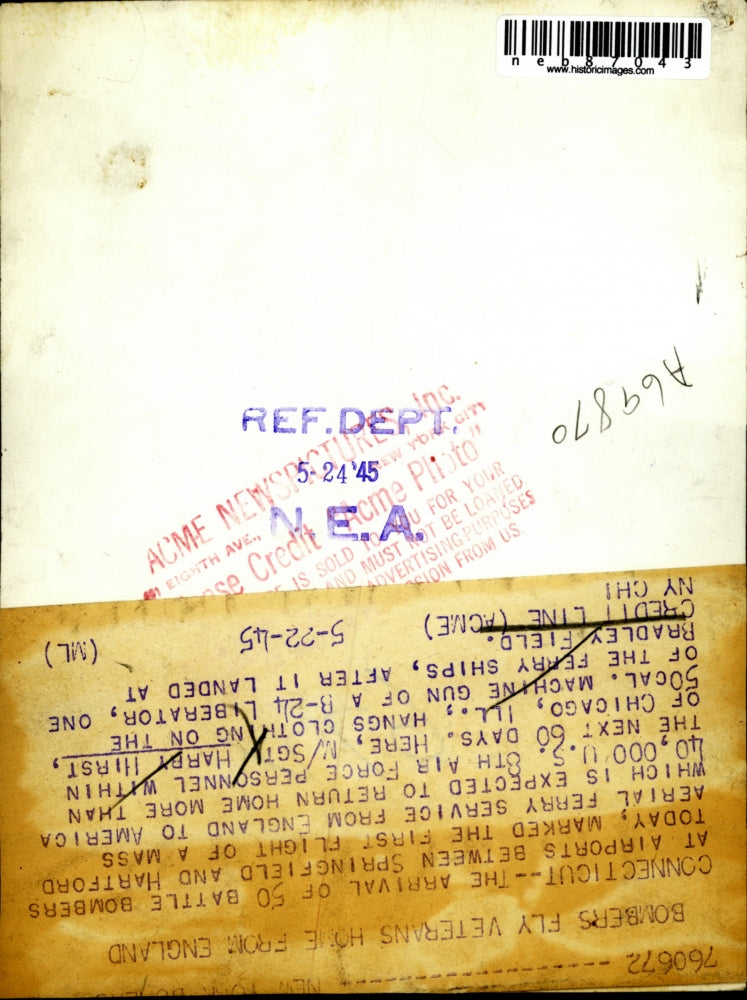 neb87043
www.historicimages.com
A69870
REF. DEPT.
5-24'45
N. E. A.
ACME NEWSPICTURES, Inc.
EIGHTH AVE., NEW YORK CITY
Credit "Acme Photo"
IS SOLD TO YOU FOR YOUR
AND MUST NOT BE LOANED
ADVERTISING PURPOSES
FROM US.
760672 NEW YORK
BOMBERS FLY VETERANS HOME FROM ENGLAND
CONNECTICUT--THE ARRIVAL OF 50 BATTLE BOMBERS
AT AIRPORTS BETWEEN SPRINGFIELD AND HARTFORD
TODAY, MARKED THE FIRST FLIGHT OF A MASS
AERIAL FERRY SERVICE FROM ENGLAND TO AMERICA
WHICH IS EXPECTED TO RETURN HOME MORE THAN
40,000 U.S. 8TH AIR FORCE PERSONNEL WITHIN
THE NEXT 60 DAYS. HERE, M/SGT. HARRY HIRST,
OF CHICAGO, ILL., HANGS CLOTHING ON THE
50CAL. MACHINE GUN OF A B-24 LIBERATOR, ONE
OF THE FERRY SHIPS, AFTER IT LANDED AT
BRADLEY FIELD.
CREDIT LINE (ACME) 5-22-45 (ML)
NY CHI